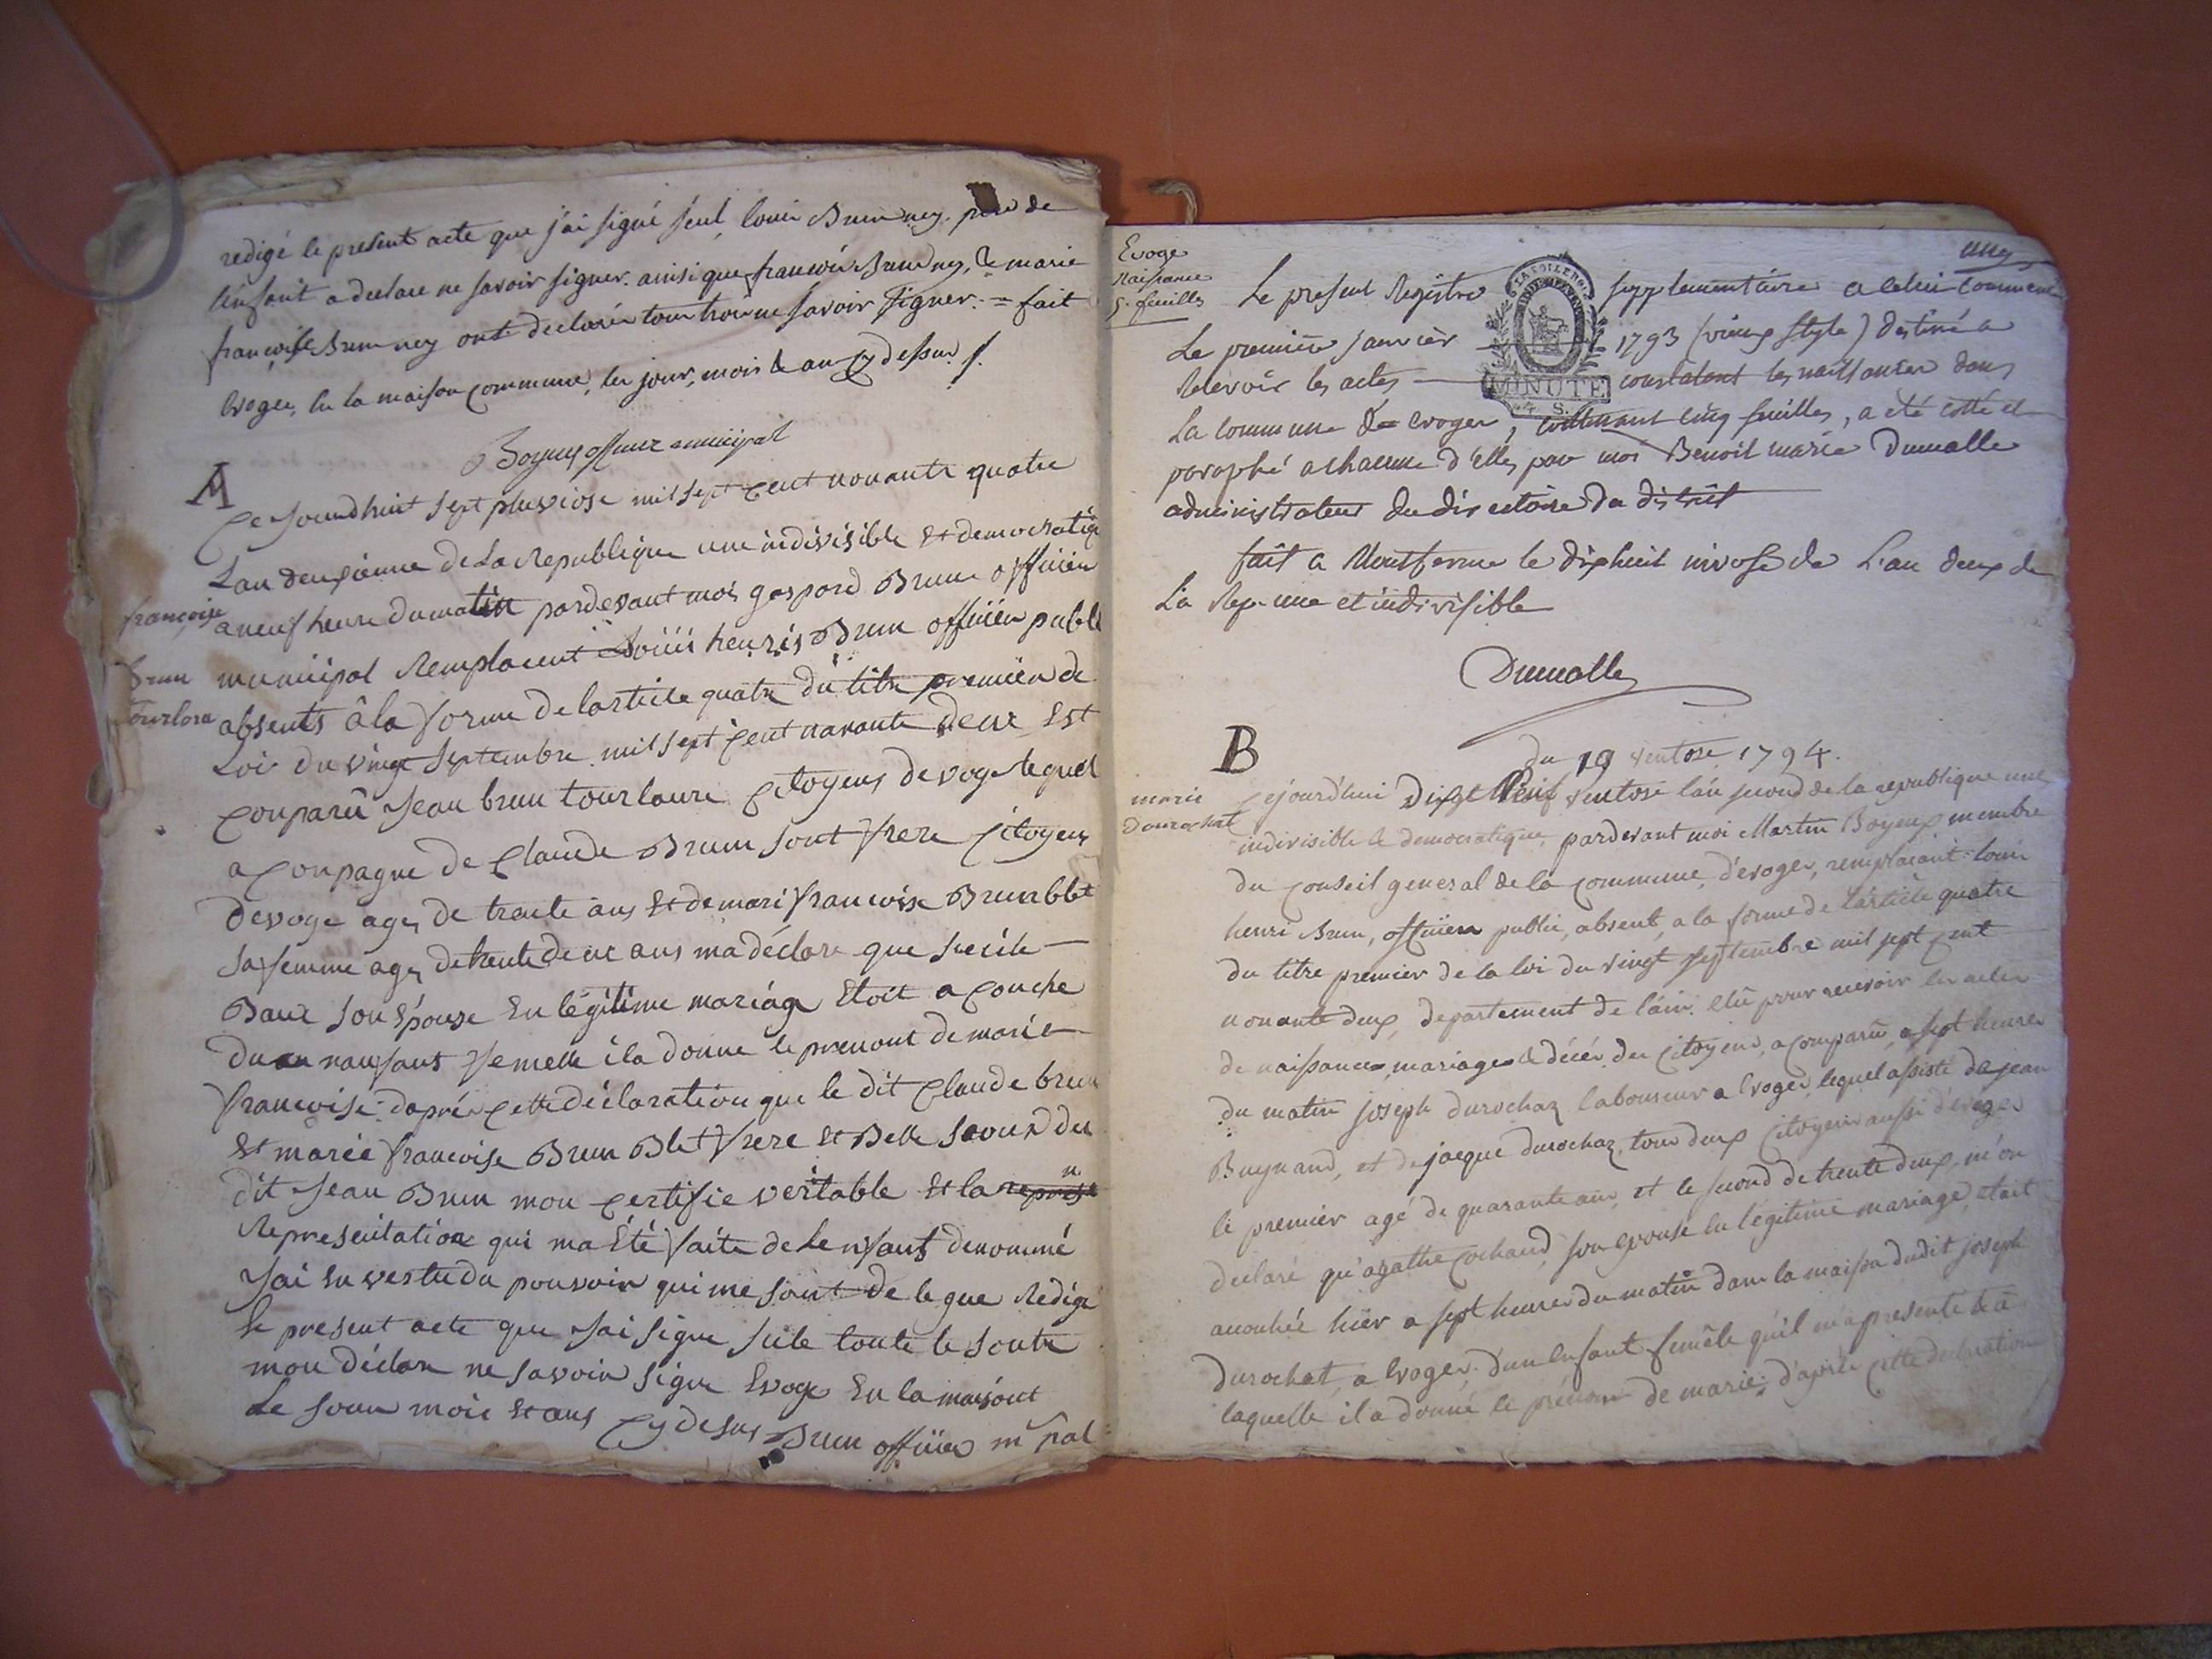 redigé le present acte que j'ai signé seul, louis Brun ney. pere de
l'enfant a declare ne savoir signer. ainsi que francois Brun ney, & marie
françoise Brun ney ont declarés tous trois ne savoir signer. = fait
Evoges, en la maison commune, les jour, mois & an cy dessus ./.
Boyeux officier municipal
A
Ce jourd huit sept pluviose mil sept cent nonante quatre
Lan deuxieme de La Republique une indivisible et democratiq
françoise
a neuf heure du matin pardevant moi gaspard Brun officier
municipal Remplacent Louiis henris Brun officier publi
brun
tourlora
absents â la forme de larticle quatre du titre premier de
Loi du vingt septembre mil sept cent nanante deux Est
conparû jean brun tourlaure citoyens devoge lequel
a conpagne de claude Brun sont frere citoyen
devoge ages de trente ans et de mari francoise Brun blet
sa femme ages de trente deux ans ma déclare que
Baux son épouse en légitime mariage etoit a couche
du an nanfant femelle il a donne le prenont de marie
francoise daprés cette déclaration que le dit claude brun
et marie francoise Brun Blet frere et Belle soeur du
dit jean Brun mon certifie veritable et la
Representation qui ma été faite de Lenfant denommé
jai en vertu du pouvoir qui me sont de legue Redige
le present acte que jai signe sule toute le soutre
mon déclare ne savoir signe Evoge En la maisont
Le jour mois et ans cy desus Brun officier mpal
Evoge
naissance
5. feuilles
une
Le present Registre supplementaire a celui commencé
Le premier janvier 1793 (vieux style) destiné a
Recevoir les actes constatant les naissances dans
MINUTE
4 S.
La commune de evoges, contenant cinq feuilles, a été cotté et
parophé a chacune d'elles par moi Benoit marie Dumolle
administrateur du directoire du district
fait a Montferme le dixhuit nivose de L'an deux de
La Rep. une et indivisible
Dumolle
B
du 19 ventose 1794.
marie
Durochat
Cejourd'hui Dix Neuf ventose l'an second de la republique une
indivisible & democratique, pardevant moi Martin Boyeux membre
du conseil general de la commune d'evoges, remplaçant louis
henri Brun, officier public, absent, a la forme de l'article quatre
du titre premier de la loi du vingt septembre mil sept cent
nonante deux, departement de l'ain. elû pour recevoir les actes
de naissances, mariages & décés des citoyens, a comparu, a sept heures
du matin joseph durochaz laboureur a Evoges, lequel assisté de jean
Buynand, et de jacque durochaz, tous deux citoyens aussi d'evoges
le premier agé de quarante ans, et le second de trente deux, m'on
declaré qu'agathe cochaud, son epouse en légitime mariage, etait
accouchée hier a sept heures du matin dans la maison dudit joseph
durochat, a Evoges, d'un enfant femêle qu'il m'a presenté & à
laquelle il a donné le prénom de marie; d'après cette declaration